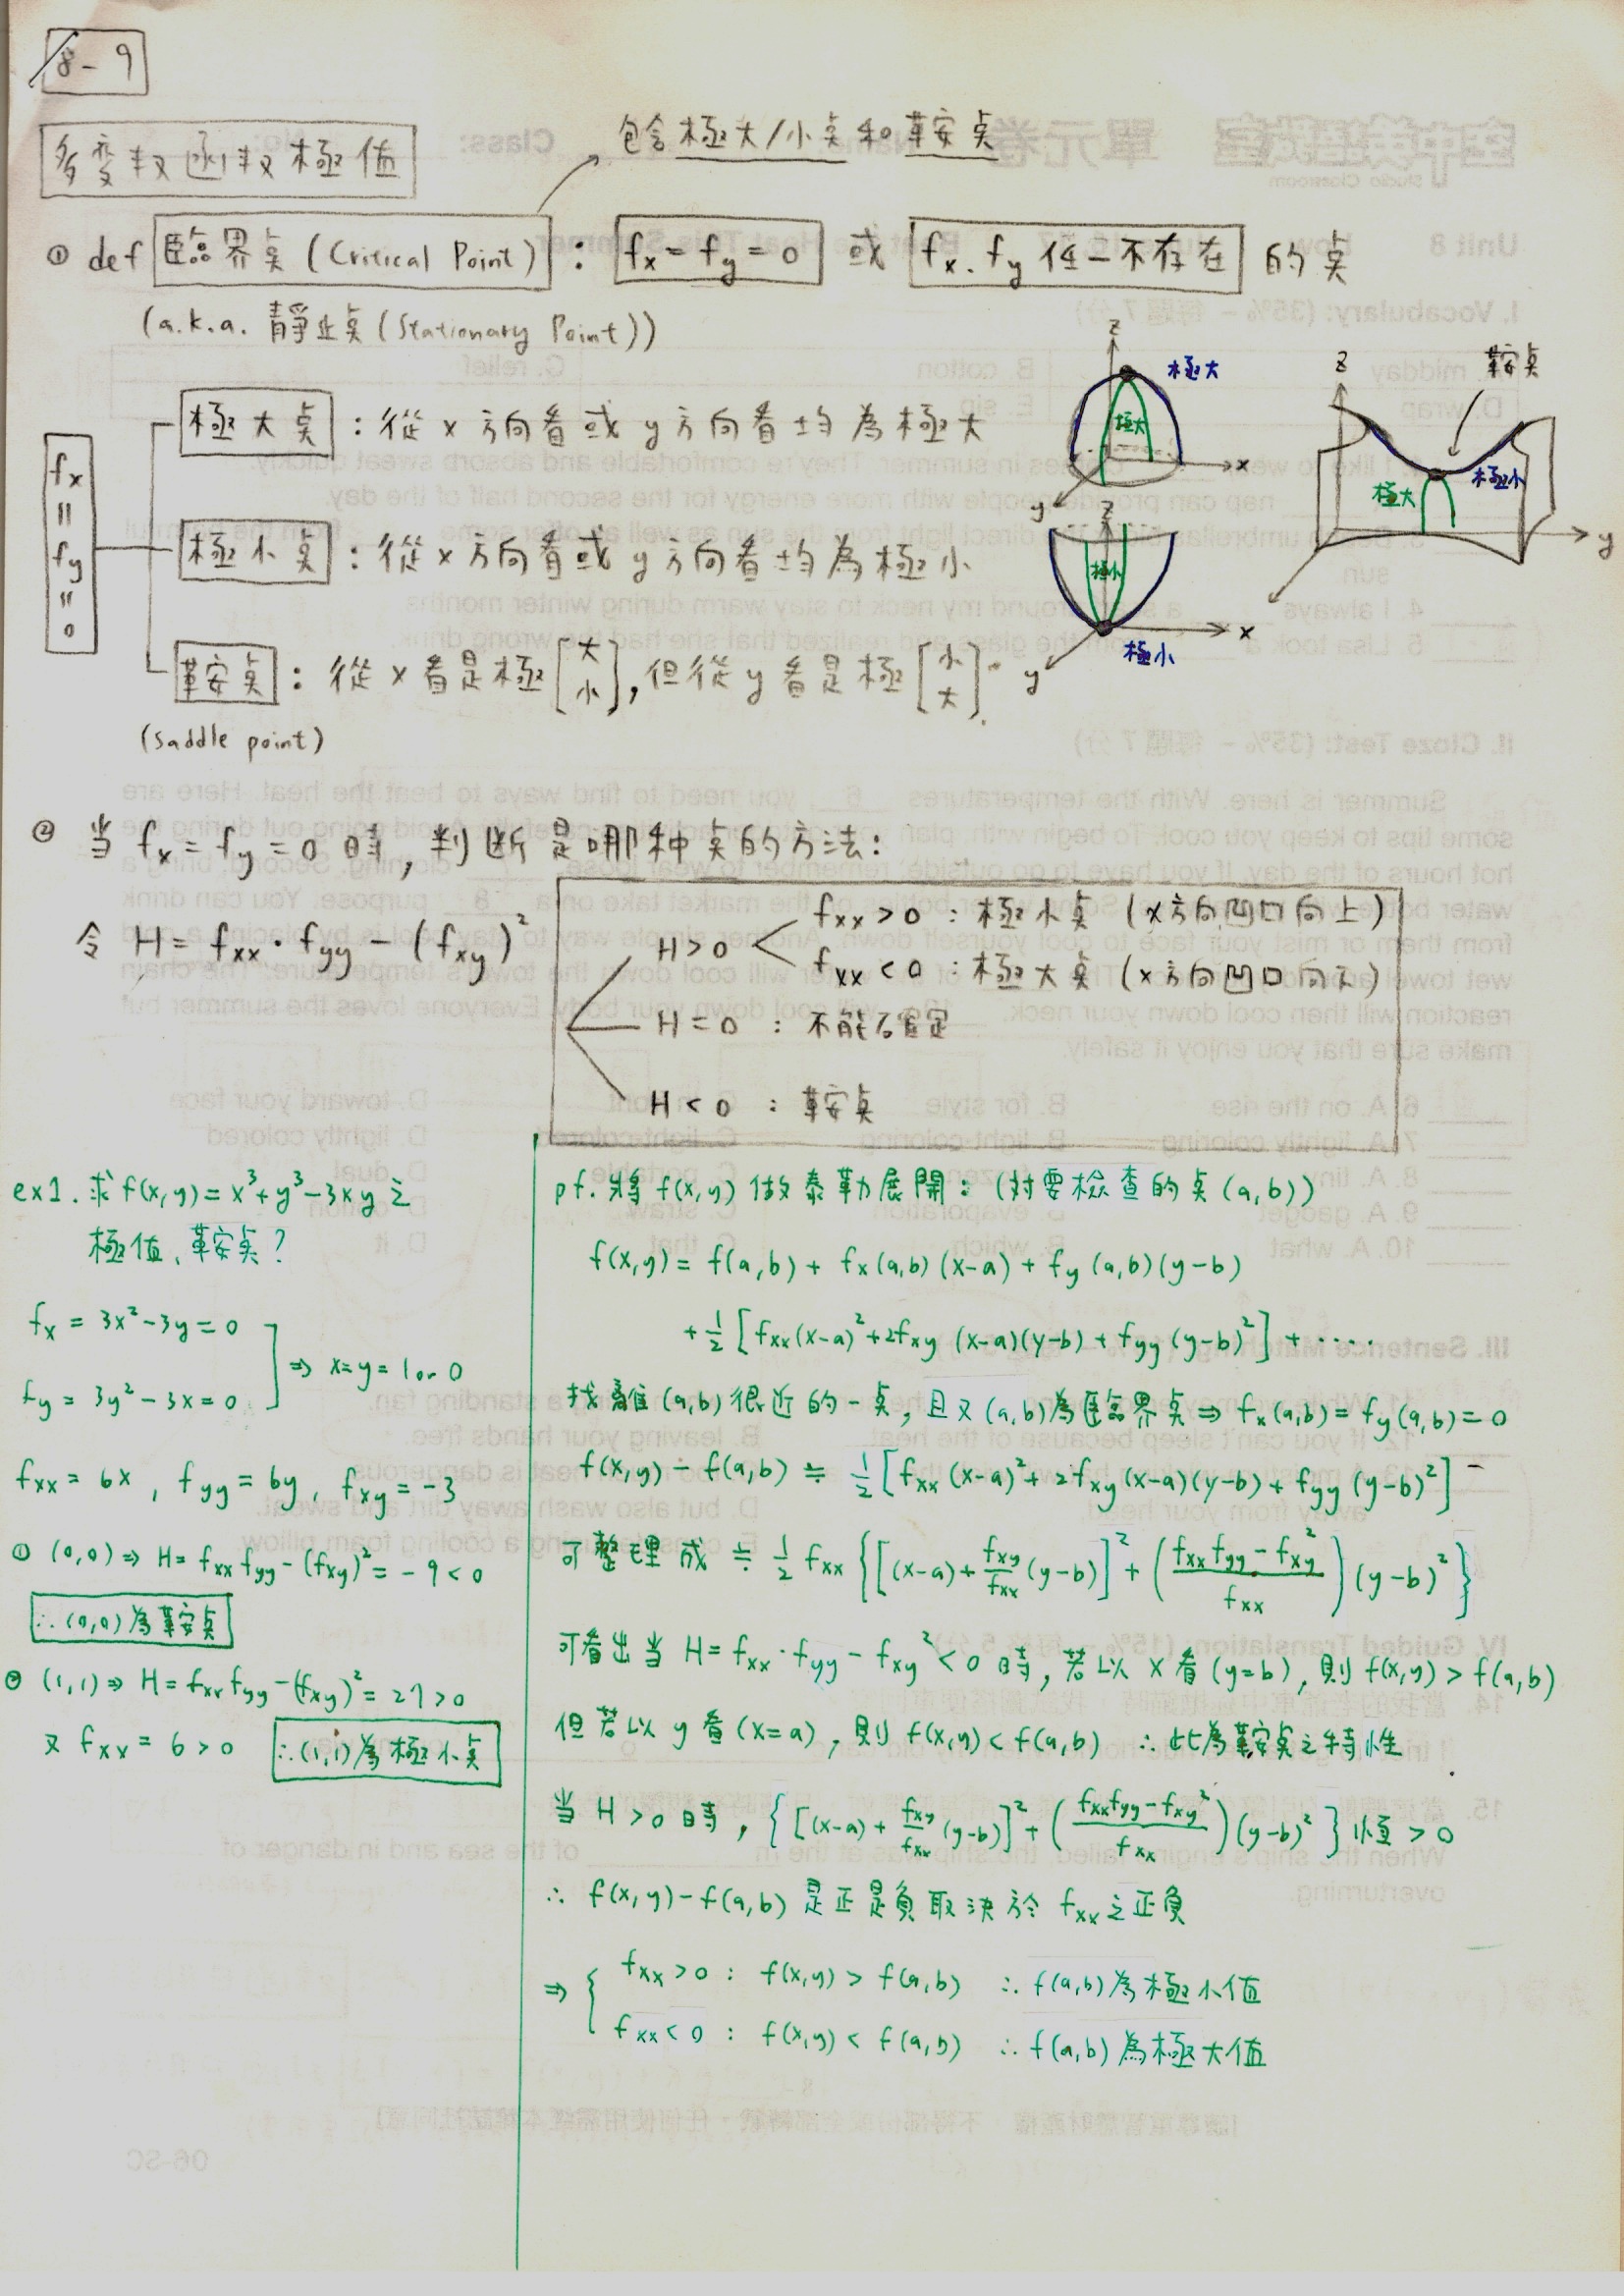 8-9
多变数函数極值
包含極大/小点和鞍点
① def 臨界点 (Critical Point) : fx = fy = 0 或 fx、fy 任一不存在 的点
(a.k.a. 靜止点 (Stationary Point))
fx = fy = 0
極大点 : 從 x 方向看或 y 方向看均為極大
極小点 : 從 x 方向看或 y 方向看均為極小
鞍点 : 從 x 看是極[大 小], 但從 y 看是極[小 大].
(Saddle point)
z 極大 極大 x y
z 極小 極小 x y
z 鞍点 極大 極小 y
② 当 fx = fy = 0 時, 判断是哪种点的方法:
令 H = fxx · fyy - (fxy)²
H > 0 < fxx > 0 : 極小点 (x方向凹口向上)
fxx < 0 : 極大点 (x方向凹口向下)
H = 0 : 不能確定
H < 0 : 鞍点
ex1. 求 f(x,y) = x³+y³-3xy 之
極值、鞍点?
fx = 3x²-3y = 0
fy = 3y²-3x = 0
⇒ x=y=1 or 0
fxx = 6x , fyy = 6y , fxy = -3
① (0,0) ⇒ H = fxx fyy - (fxy)² = -9 < 0
∴ (0,0) 為鞍点
② (1,1) ⇒ H = fxx fyy - (fxy)² = 27 > 0
又 fxx = 6 > 0 ∴ (1,1) 為極小点
pf. 將 f(x,y) 做泰勒展開: (対要檢查的点 (a,b))
f(x,y) = f(a,b) + fx(a,b)(x-a) + fy(a,b)(y-b)
+ 1/2 [fxx(x-a)² + 2fxy(x-a)(y-b) + fyy(y-b)²] + ·····
找離 (a,b) 很近的一点, 且又 (a,b) 為臨界点 ⇒ fx(a,b) = fy(a,b) = 0
f(x,y) - f(a,b) ≒ 1/2 [fxx(x-a)² + 2fxy(x-a)(y-b) + fyy(y-b)²]
可整理成 ≒ 1/2 fxx {[(x-a) + fxy/fxx (y-b)]² + ((fxx fyy - fxy²)/fxx)(y-b)²}
可看出当 H = fxx · fyy - fxy² < 0 時, 若以 x 看 (y=b), 則 f(x,y) > f(a,b)
但若以 y 看 (x=a), 則 f(x,y) < f(a,b) ∴ 此為鞍点之特性
当 H > 0 時, {[(x-a) + fxy/fxx (y-b)]² + ((fxx fyy - fxy²)/fxx)(y-b)²} 恆 > 0
∴ f(x,y) - f(a,b) 是正是負取決於 fxx 之正負
⇒ { fxx > 0 : f(x,y) > f(a,b) ∴ f(a,b) 為極小值
fxx < 0 : f(x,y) < f(a,b) ∴ f(a,b) 為極大值